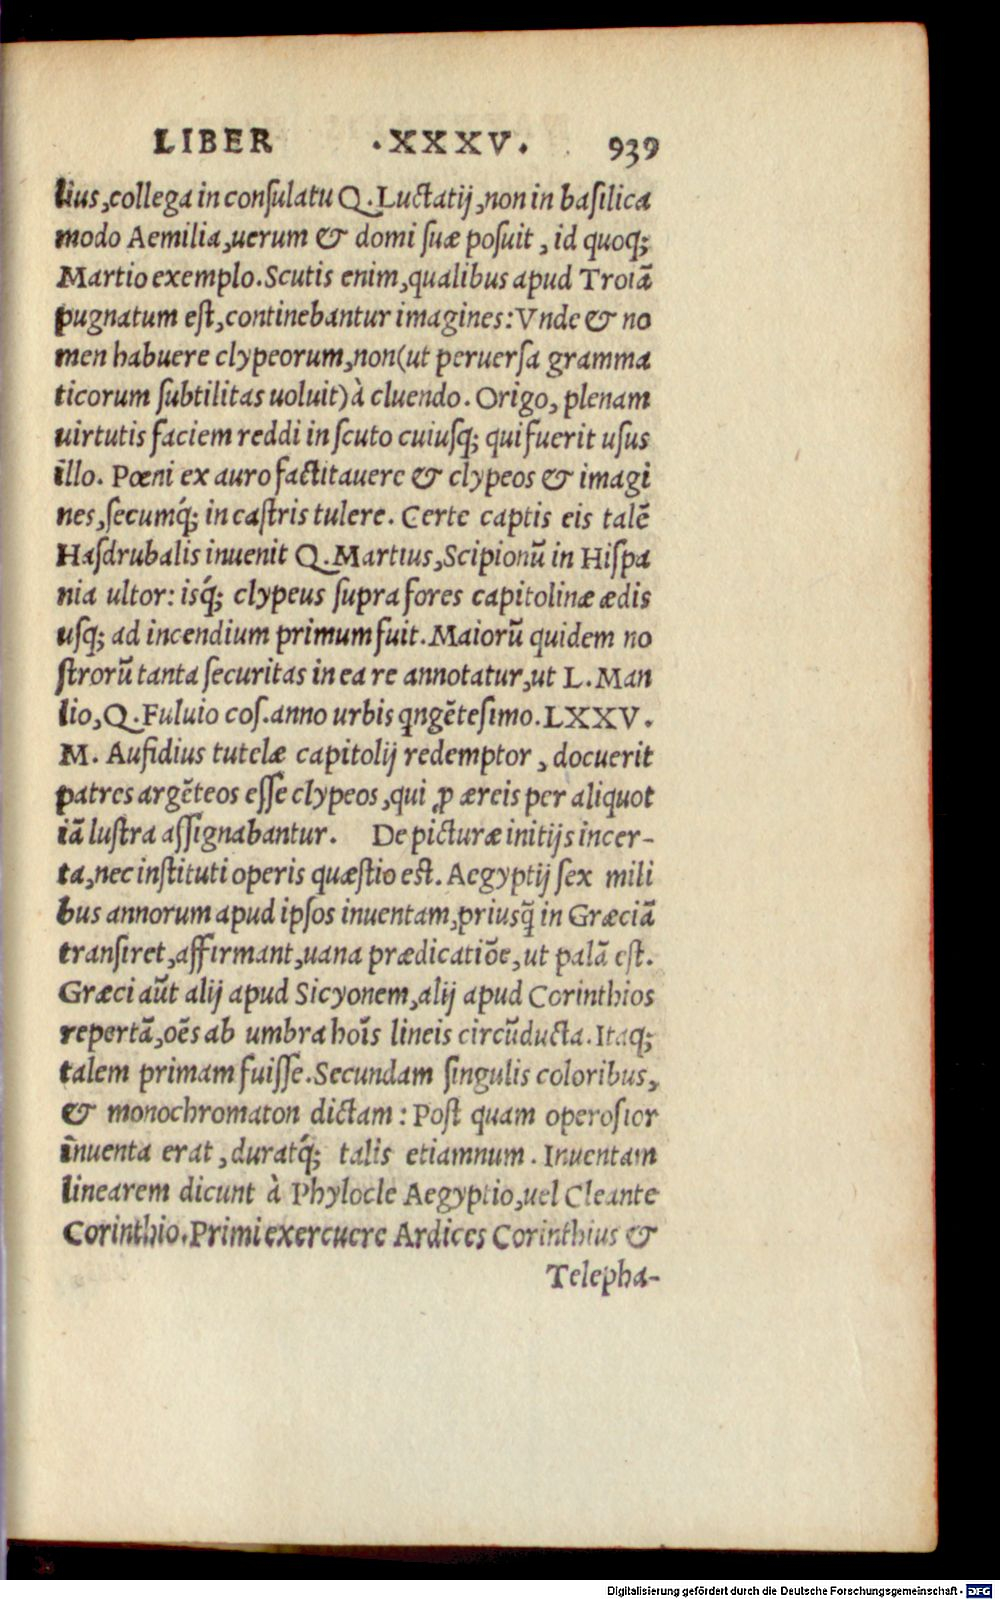 LIBER .XXXV. 939
lius, collega in conſulatu Q. Luctatij, non in baſilica
modo Aemilia, uerum & domi ſuæ poſuit, id quoq;
Martio exemplo. Scutis enim, qualibus apud Troiã
pugnatum eſt, continebantur imagines: Vnde & no
men habuere clypeorum, non (ut peruerſa gramma
ticorum ſubtilitas uoluit) à cluendo. Origo, plenam
uirtutis faciem reddi in ſcuto cuiuſq; qui fuerit uſus
illo. Pœni ex auro factitauere & clypeos & imagi
nes, ſecumq́; in caſtris tulere. Certe captis eis talẽ
Haſdrubalis inuenit Q. Martius, Scipionũ in Hiſpa
nia ultor: isq́; clypeus ſupra fores capitolinæ ædis
uſq; ad incendium primum fuit. Maiorũ quidem no
ſtrorũ tanta ſecuritas in ea re annotatur, ut L. Man
lio, Q. Fuluio coſ. anno urbis qngẽteſimo. LXXV.
M. Aufidius tutelæ capitolij redemptor, docuerit
patres argẽteos eſſe clypeos, qui ꝓ æreis per aliquot
iã luſtra aſſignabantur. De picturæ initijs incer-
ta, nec inſtituti operis quæſtio eſt. Aegyptij ſex mili
bus annorum apud ipſos inuentam, priusq̃ in Græciã
tranſiret, affirmant, uana prædicatiõe, ut palã eſt.
Græci aũt alij apud Sicyonem, alij apud Corinthios
repertã, oẽs ab umbra hoĩs lineis circũducta. Itaq;
talem primam fuiſſe. Secundam ſingulis coloribus,
& monochromaton dictam: Poſt quam operoſior
inuenta erat, duratq́; talis etiamnum. Inuentam
linearem dicunt à Phylocle Aegyptio, uel Cleante
Corinthio. Primi exercuere Ardices Corinthius &
Telepha-
Digitalisierung gefördert durch die Deutsche Forschungsgemeinschaft - DFG